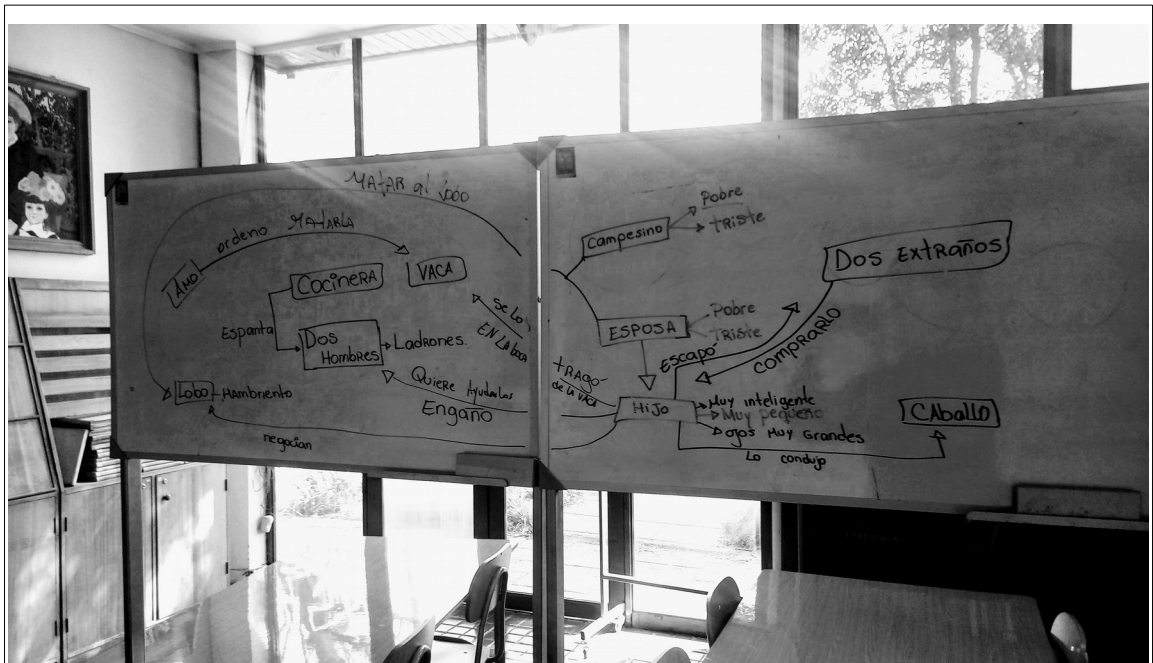 MATAR al lobo
ordeno MATARLA
AMO
COCINERA
VACA
Espanta
DOS
HOMBRES
LADRONES.
SE LO
EN LA BOCA
Quiere Ayudarlos
Engano
Lobo
HAMBRIENTO
negocian
Campesino
Pobre
TRISTE
DOS EXTRAÑOS
ESPOSA
Pobre
TRISTE
ESCAPÓ
COMPRARLO
TRAGÓ
de la VACA
HIJO
Muy inteligente
Muy pequeño
OJOS MUY GRANDES
CABALLO
Lo condujo